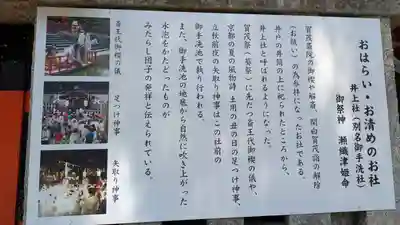 おはらい・お清めのお社
井上社(別名御手洗社)
御祭神 瀬織津姫命
賀茂斎院の御禊や解斎、関白賀茂詣の解除
(お祓い)の為参拝になったお社である。
井戸の井筒の上に祀られたところから、
井上社と呼ばれるようになった。
賀茂祭(葵祭)に先だつ斎王代御禊の儀や、
京都の夏の風物詩 土用の丑の日の足つけ神事、
立秋前夜の矢取り神事はこの社前の
御手洗池で執り行われる。
また、御手洗池の池底から自然に吹き上がった
水泡をかたどったものが
みたらし団子の発祥と伝えられている。
斎王代御禊の儀
足つけ神事
矢取り神事